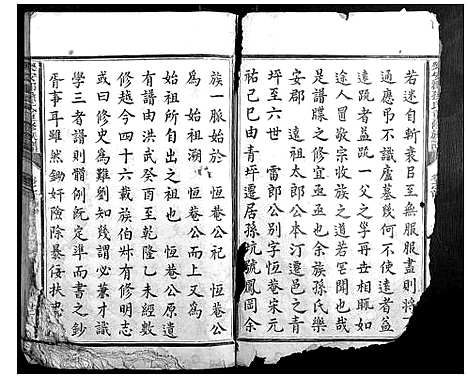 若迷自斬衰日至無服服盡則將
通慶弔不識廬墓幾何不使遠者
逾遠疏者益疏一父之學再世相眎如
途人冒敬宗收族之道者若罔聞也哉
是譜牒之修宜亟亟也余族孫氏樂
安郡 遠祖太郎公本汀遷邑之青
坪至六世 雷郎公別字恆菴宋元
祐己卯自青坪遷居孫坑號鳳岡余
族一脈始於 恆菴公祀 恆菴公
為 始祖溯 恆菴公而上又為
始祖所自出之祖也 恆菴公原遺
有譜由洪武癸酉至乾隆乙未經數
修越今四十六載族伯叔有修明志
或曰修史為難劉知幾謂必兼才識
學三者譜則體例既定準而書之鈔
胥事耳雖然鋤奸險除暴佞扶忠